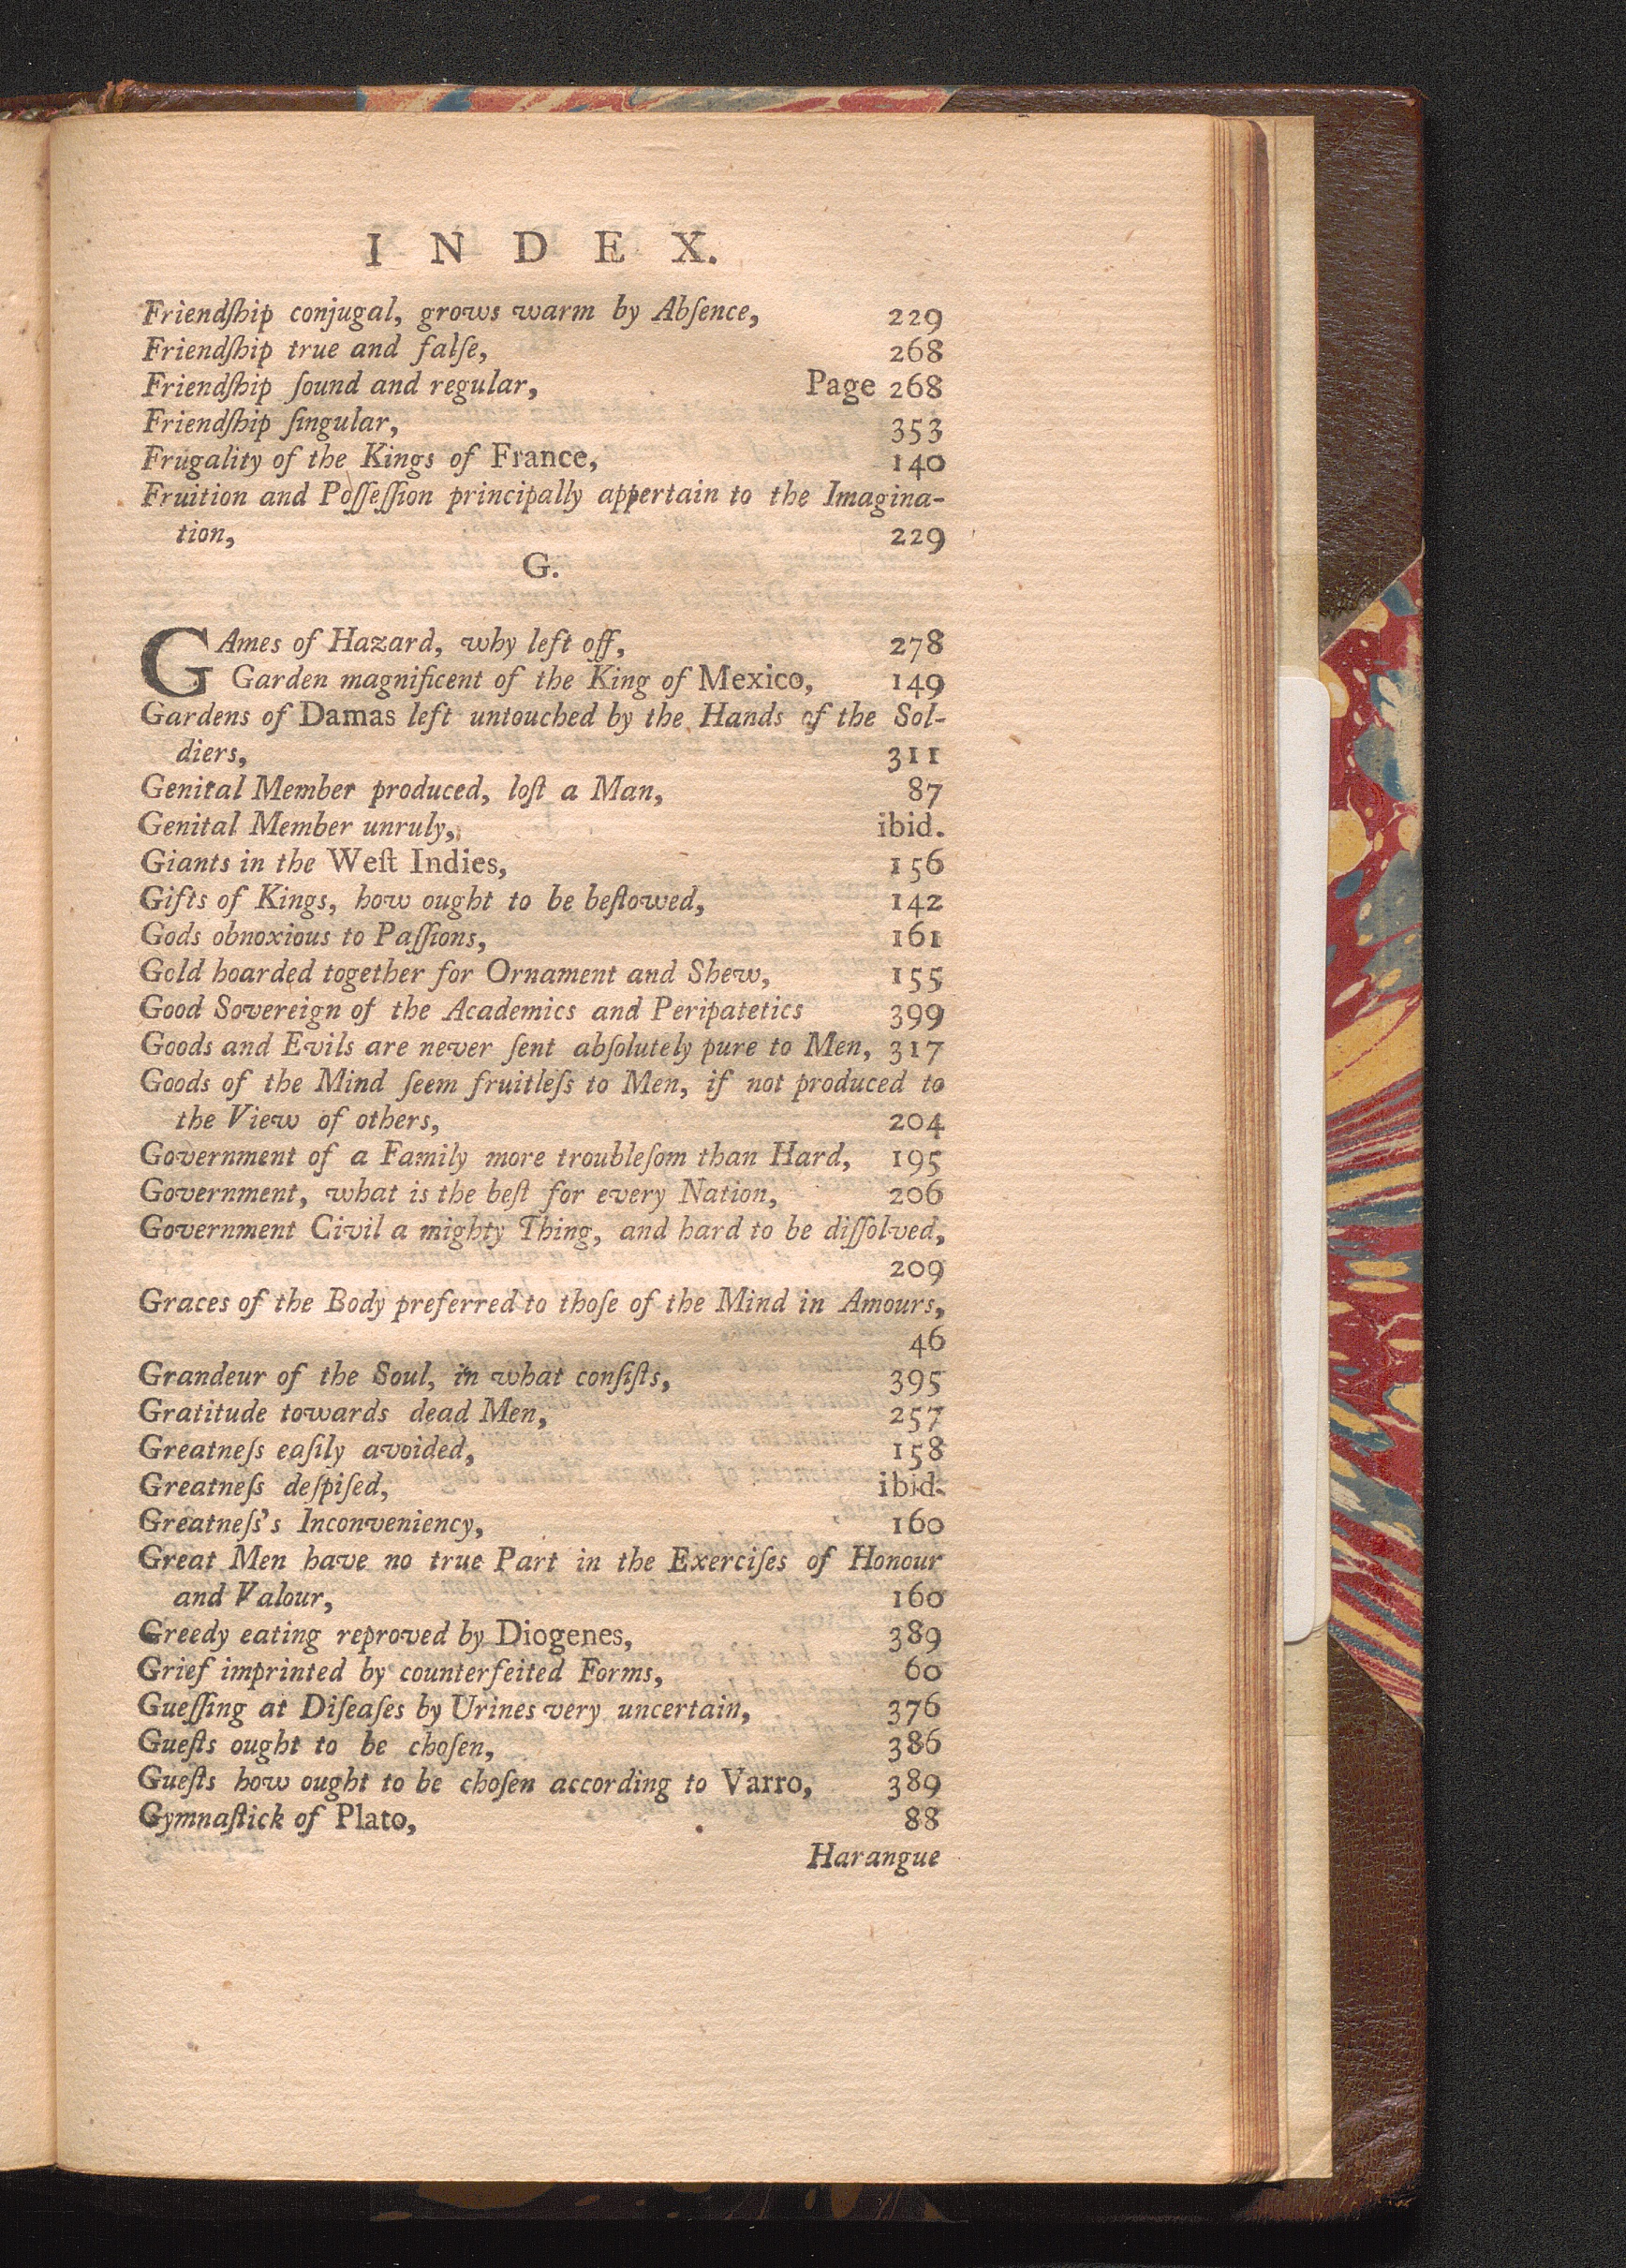 I N D E X.
Friendſhip conjugal, grows warm by Abſence, 229
Friendſhip true and falſe, 268
Friendſhip ſound and regular, Page 268
Friendſhip ſingular, 353
Frugality of the Kings of France, 140
Fruition and Poſſeſſion principally appertain to the Imagina-
tion, 229
G.
GAmes of Hazard, why left off, 278
Garden magnificent of the King of Mexico, 149
Gardens of Damas left untouched by the Hands of the Sol-
diers, 311
Genital Member produced, loſt a Man, 87
Genital Member unruly, ibid.
Giants in the Weſt Indies, 156
Gifts of Kings, how ought to be beſtowed, 142
Gods obnoxious to Paſſions, 161
Gold hoarded together for Ornament and Shew, 155
Good Sovereign of the Academics and Peripatetics 399
Goods and Evils are never ſent abſolutely pure to Men, 317
Goods of the Mind ſeem fruitleſs to Men, if not produced to
the View of others, 204
Government of a Family more troubleſom than Hard, 195
Government, what is the beſt for every Nation, 206
Government Civil a mighty Thing, and hard to be diſſolved,
209
Graces of the Body preferred to thoſe of the Mind in Amours,
46
Grandeur of the Soul, in what conſiſts, 395
Gratitude towards dead Men, 257
Greatneſs eaſily avoided, 158
Greatneſs deſpiſed, ibid.
Greatneſs's Inconveniency, 160
Great Men have no true Part in the Exerciſes of Honour
and Valour, 160
Greedy eating reproved by Diogenes, 389
Grief imprinted by counterfeited Forms, 60
Gueſſing at Diſeaſes by Urines very uncertain, 376
Gueſts ought to be choſen, 386
Gueſts how ought to be choſen according to Varro, 389
Gymnaſtick of Plato, 88
Harangue